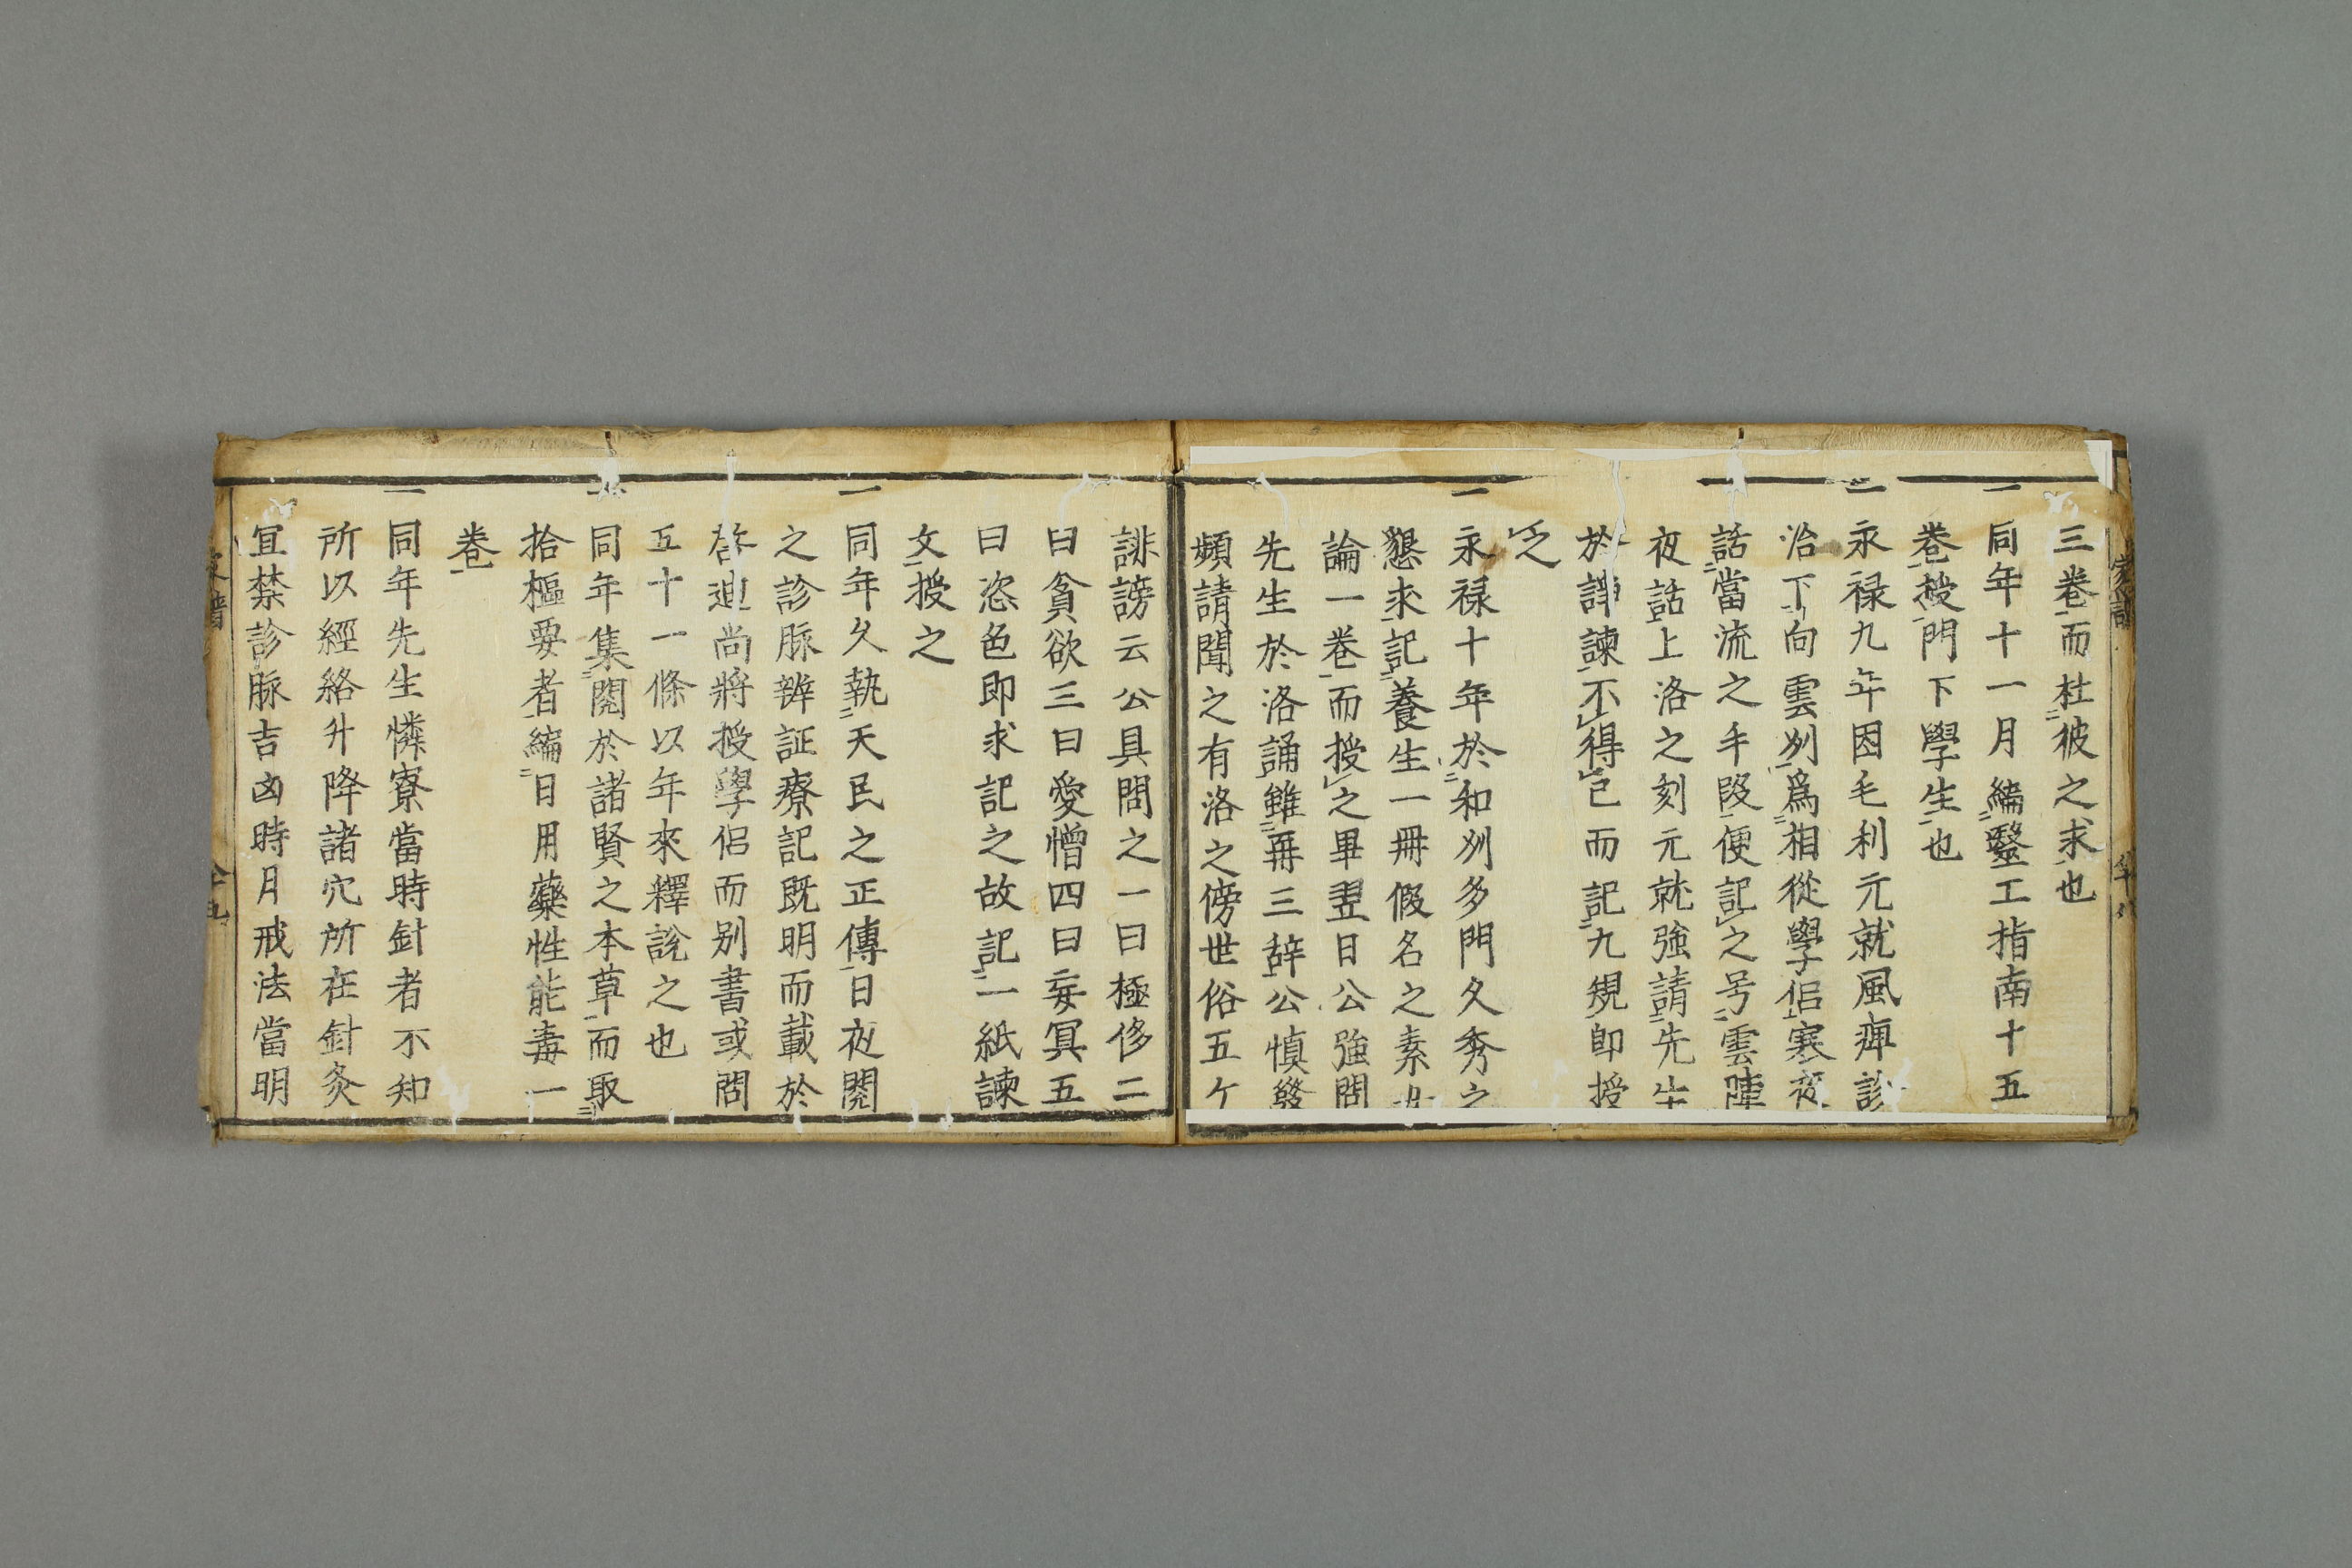 三巻而杜彼之求也
一同年十一月編醫工指南十五
巻授門下學生也
一永禄九年因毛利元就風痺診
治下向雲州爲相從學侶寒夜
話當流之手段便記之号雲陣
夜話上洛之刻元就強請先生
於諍諫不得已而記九規即授
之
一永禄十年於和州多門久秀之
懇求記養生一冊假名之素
論一巻而授之畢翌日公強問
先生於洛誦雖再三辞公慎發
頻請聞之有洛之傍世俗五ケ
誹謗云公具問之一曰極侈二
曰貪欲三曰愛憎四曰妄冥五
曰恣色即求記之故記一紙諫
文授之
一同年久執天民之正傳日夜閲
之診脉辨証療記既明而載於
啓迪尚將授學侶而别書或問
五十一條以年來釋説之也
同年集閲於諸賢之本草而取
拾樞要者編日用藥性能毒一
巻
一同年先生憐寮當時針者不知
所以經絡升降諸穴所在針灸
宜禁診脉吉凶時月戒法當明